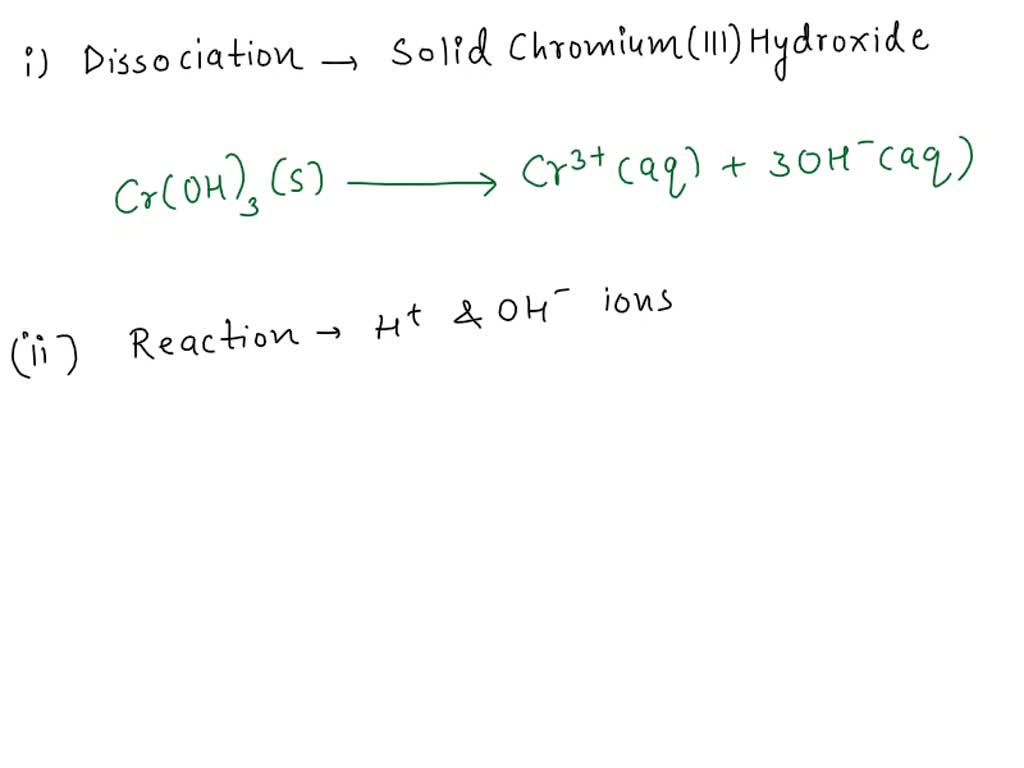 i) Dissociation → Solid Chromium(III) Hydroxide
Cr(OH)₃ (s) ⟶ Cr³⁺ (aq) + 3OH⁻ (aq)
(ii) Reaction → H⁺ & OH⁻ ions